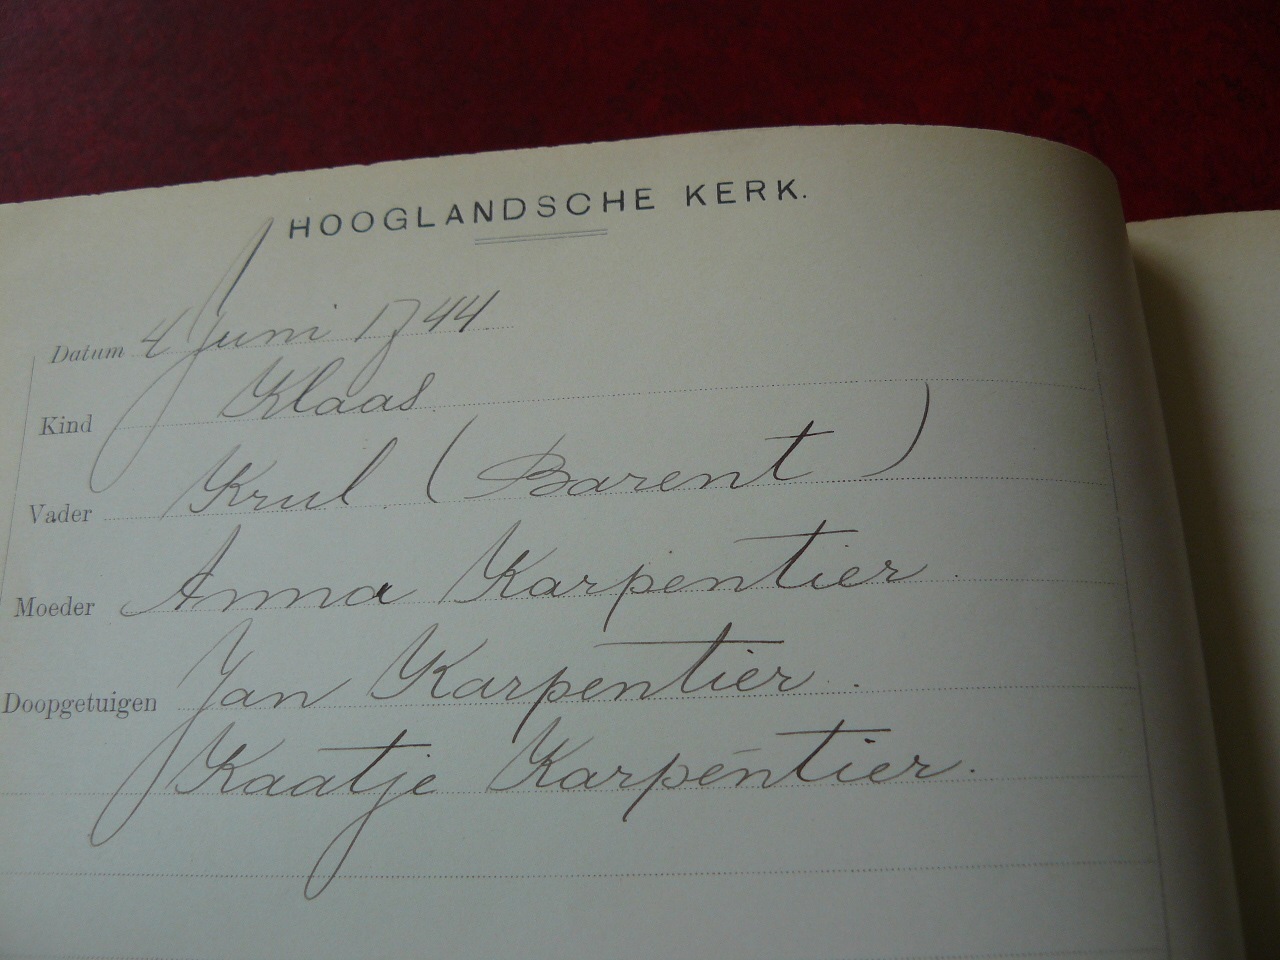 HOOGLANDSCHE KERK.
Datum 4 Juni 1744.
Kind Klaas.
Vader Krul (Barent)
Moeder Anna Karpentier.
Doopgetuigen Jan Karpentier.
Kaatje Karpentier.